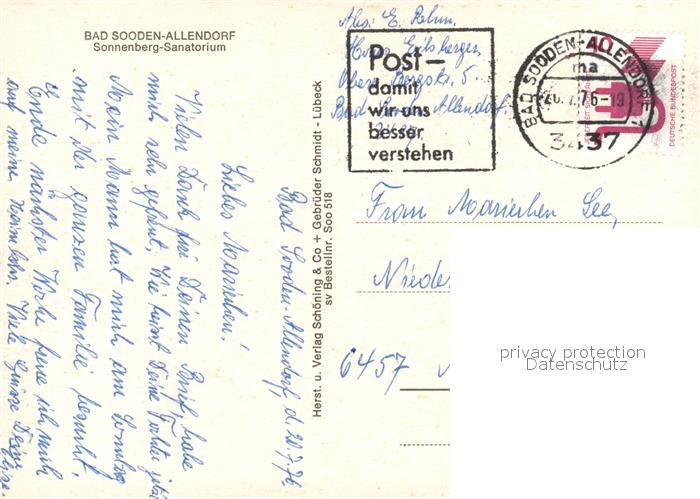 BAD SOODEN-ALLENDORF
Sonnenberg-Sanatorium
Bad Sooden-Allendorf, d. 20.7.76
Liebes Mariechen!
Vielen Dank für Deinen Brief, habe
mich sehr gefreut. Wie
Mein Mann hat mich am Sonntag
mit der ganzen Familie besucht.
Ende nächster Woche freue ich mich
auf meine Heimkehr. Viele Grüsse Deine
Herst. u. Verlag Schöning & Co + Gebrüder Schmidt - Lübeck
sv Bestellnr. Soo 518
Abs: E. Rehm,
Haus
Obere Bergstr. 5
Bad Sooden-Allendorf
Post-
damit
wir uns
besser
verstehen
BAD SOODEN-ALLENDORF 1
ma
20.7.76-19
3437
DEUTSCHE BUNDESPOST
Frau Mariechen See,
Nieder
6457
privacy protection
Datenschutz